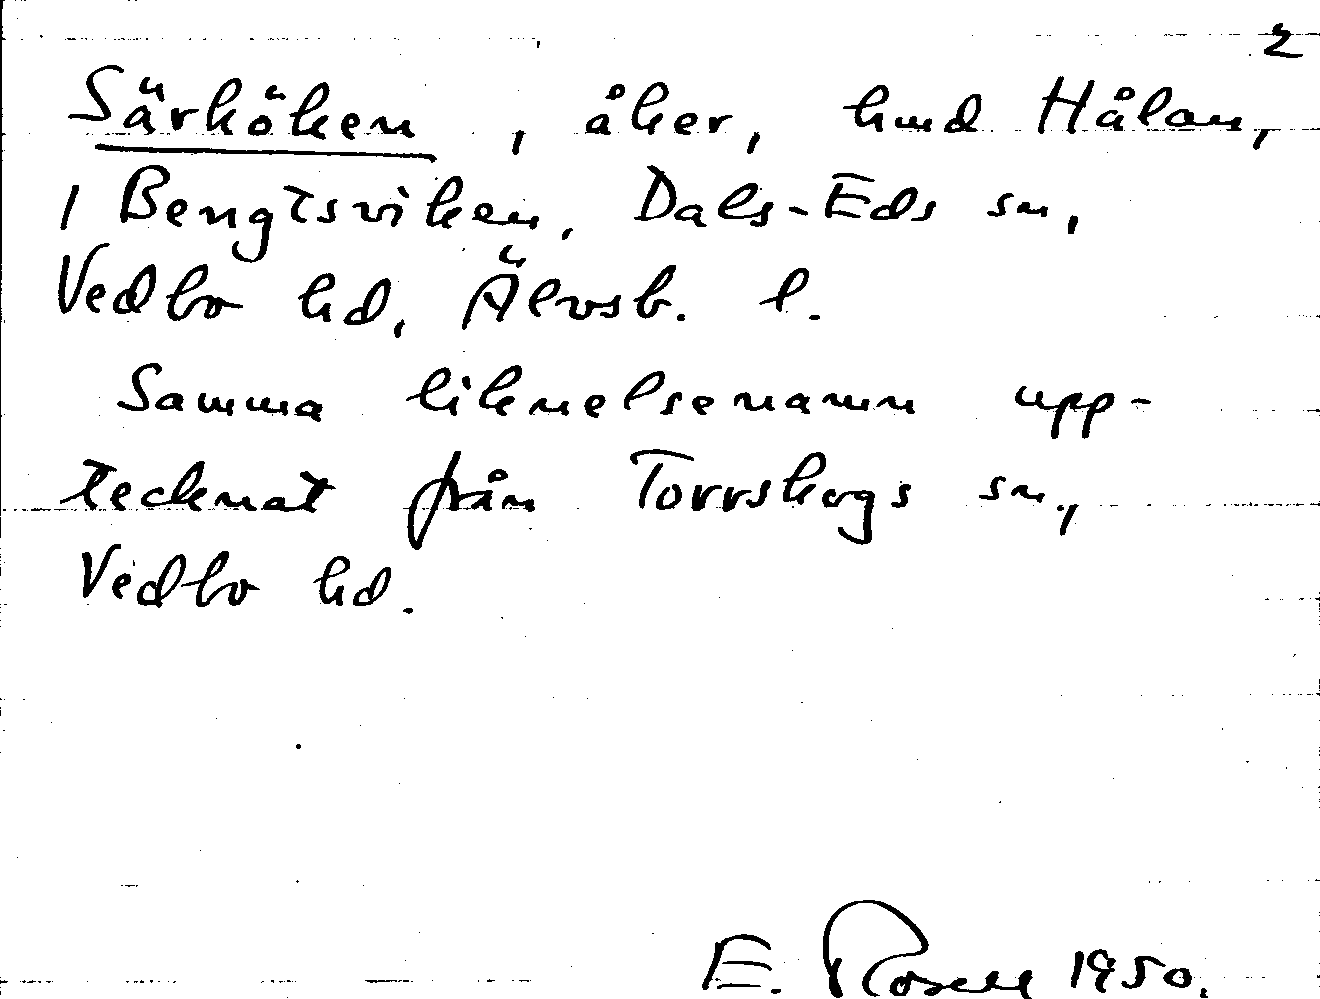 2
Särköken, åker, hmd Hålan,
1 Bengtsviken, Dals-Eds sn,
Vedbo hd, Älvsb. l.
Samma liknelsenamn upp-
tecknat från Torrskogs sn.,
Vedbo hd.
E. Rosell 1950.